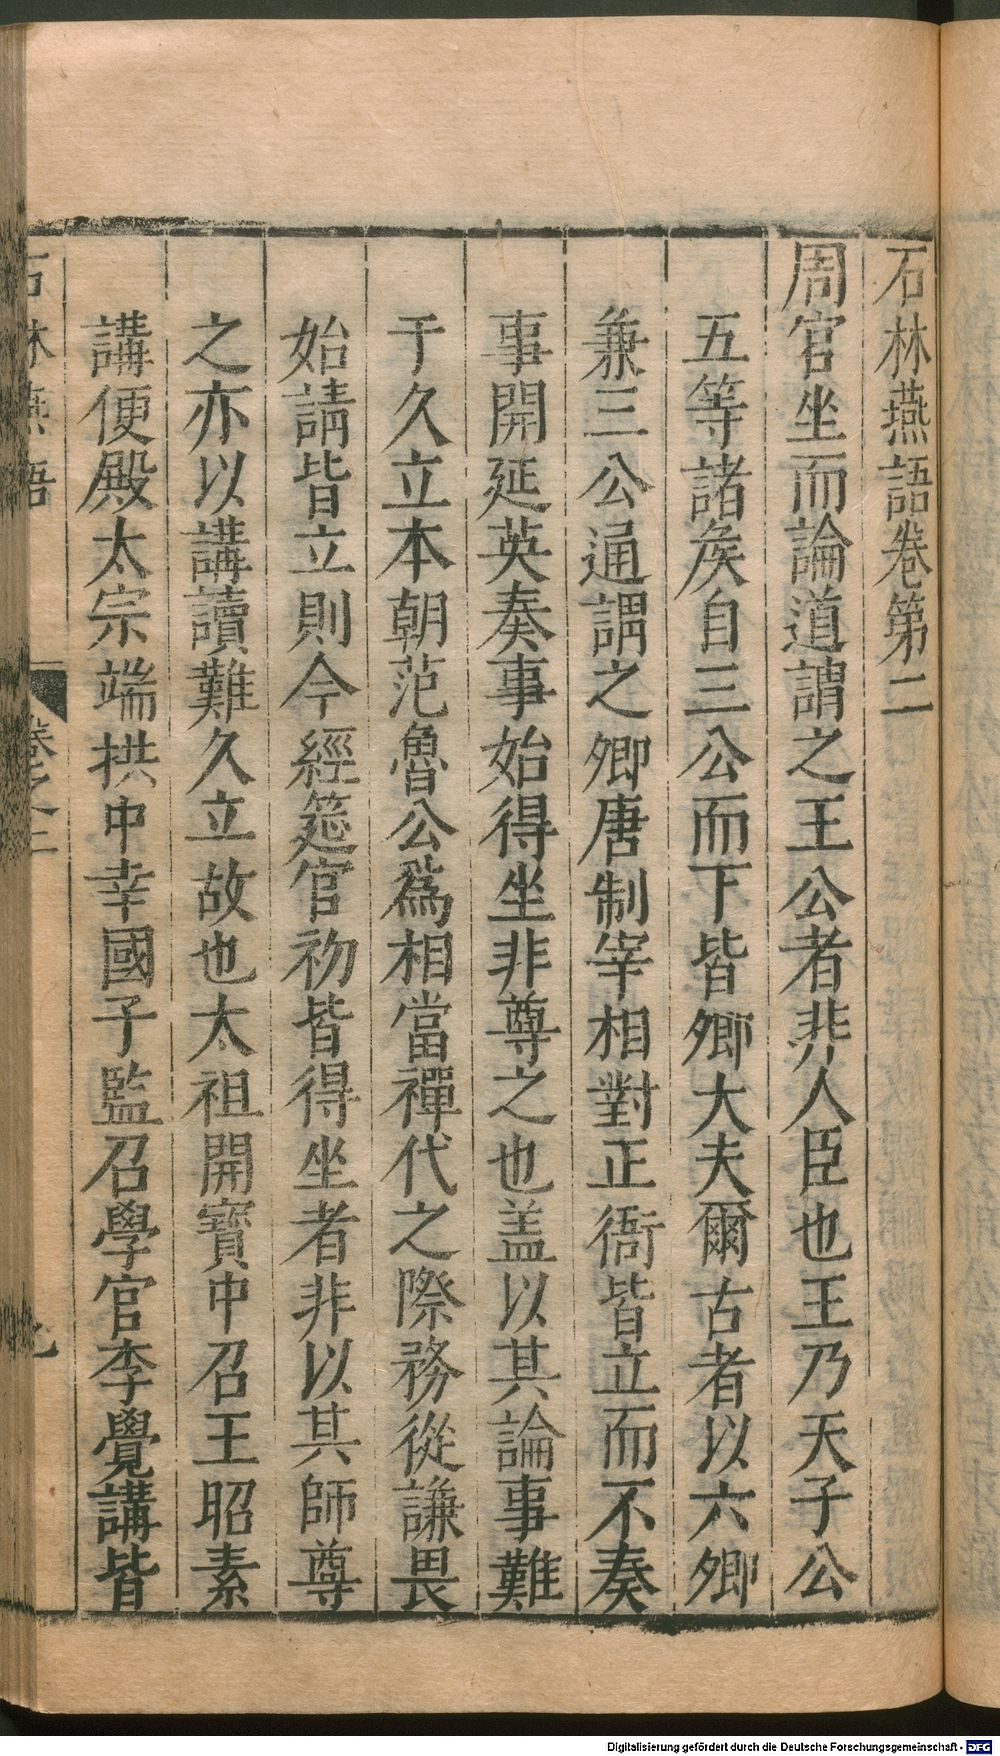 石林燕語卷第二
周官坐而論道謂之王公者非人臣也王乃天子公
五等諸矦自三公而下皆卿大夫爾古者以六卿
兼三公通謂之卿唐制宰相對正衙皆立而不奏
事開延英奏事始得坐非尊之也盖以其論事難
于久立本朝范魯公爲相當禪代之際務從謙畏
始請皆立則今經筵官初皆得坐者非以其師尊
之亦以講讀難久立故也太祖開寶中召王昭素
講便殿太宗端拱中幸國子監召學官李覺講皆
石林燕語
卷之二
Digitalisierung gefördert durch die Deutsche Forschungsgemeinschaft - DFG